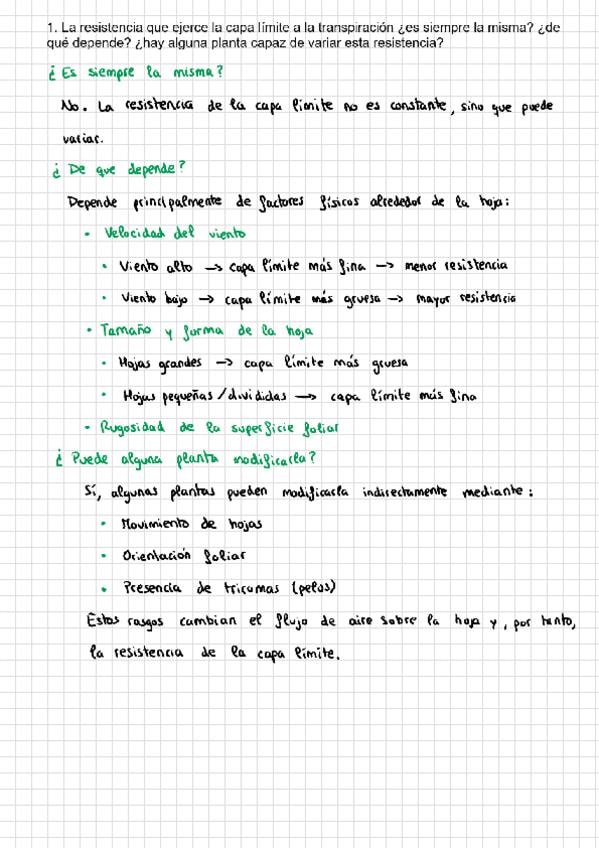 1. La resistencia que ejerce la capa límite a la transpiración ¿es siempre la misma? ¿de
qué depende? ¿hay alguna planta capaz de variar esta resistencia?
¿Es siempre la misma?
No. La resistencia de la capa límite no es constante, sino que puede
variar.
¿De que depende?
Depende principalmente de factores físicos alrededor de la hoja:
• Velocidad del viento
• Viento alto → capa límite más fina → menor resistencia
• Viento bajo → capa límite más gruesa → mayor resistencia
• Tamaño y forma de la hoja
• Hojas grandes → capa límite más gruesa
• Hojas pequeñas/divididas → capa límite más fina
• Rugosidad de la superficie foliar
¿Puede alguna planta modificarla?
Sí, algunas plantas pueden modificarla indirectamente mediante:
• Movimiento de hojas
• Orientación foliar
• Presencia de tricomas (pelos)
Estos rasgos cambian el flujo de aire sobre la hoja y, por tanto,
la resistencia de la capa límite.